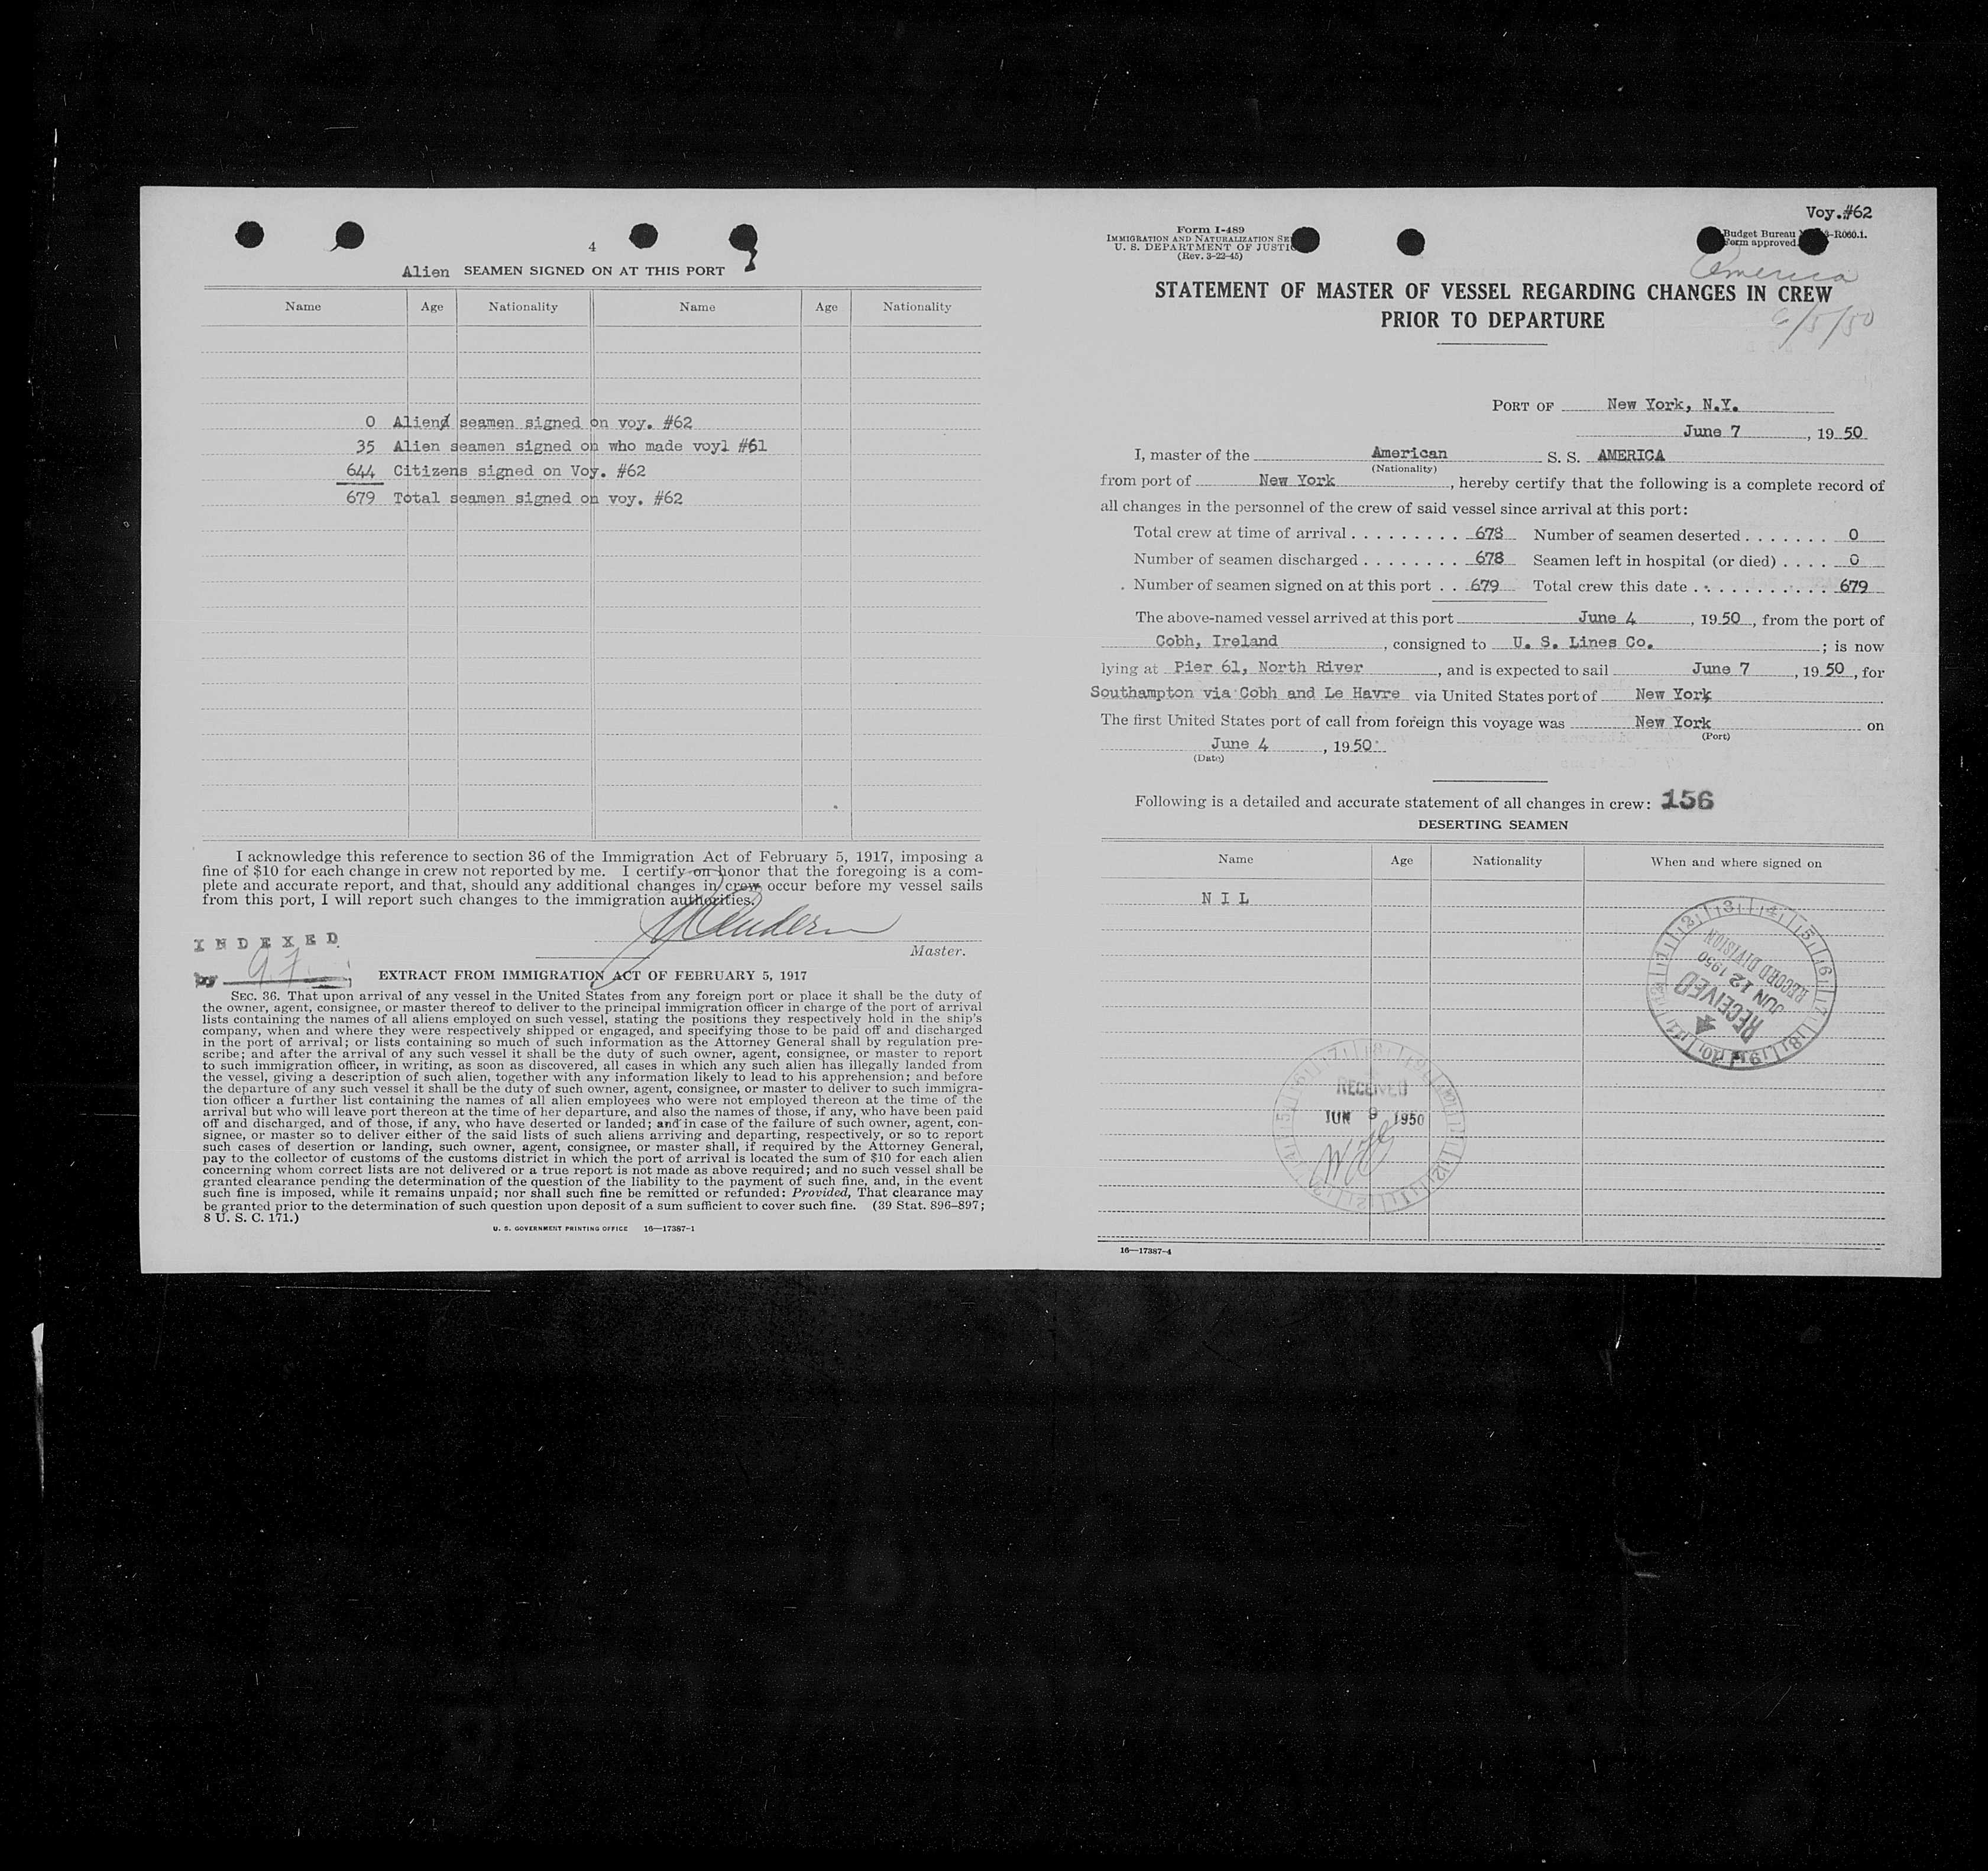 4
Alien SEAMEN SIGNED ON AT THIS PORT
Name Age Nationality Name Age Nationality
0 Alien seamen signed on voy. #62
35 Alien seamen signed on who made voyl #61
644 Citizens signed on Voy. #62
679 Total seamen signed on voy. #62
I acknowledge this reference to section 36 of the Immigration Act of February 5, 1917, imposing a
fine of $10 for each change in crew not reported by me. I certify on honor that the foregoing is a com-
plete and accurate report, and that, should any additional changes in crew occur before my vessel sails
from this port, I will report such changes to the immigration authorities.
Master.
INDEXED
by
EXTRACT FROM IMMIGRATION ACT OF FEBRUARY 5, 1917
SEC. 36. That upon arrival of any vessel in the United States from any foreign port or place it shall be the duty of
the owner, agent, consignee, or master thereof to deliver to the principal immigration officer in charge of the port of arrival
lists containing the names of all aliens employed on such vessel, stating the positions they respectively hold in the ship's
company, when and where they were respectively shipped or engaged, and specifying those to be paid off and discharged
in the port of arrival; or lists containing so much of such information as the Attorney General shall by regulation pre-
scribe; and after the arrival of any such vessel it shall be the duty of such owner, agent, consignee, or master to report
to such immigration officer, in writing, as soon as discovered, all cases in which any such alien has illegally landed from
the vessel, giving a description of such alien, together with any information likely to lead to his apprehension; and before
the departure of any such vessel it shall be the duty of such owner, agent, consignee, or master to deliver to such immigra-
tion officer a further list containing the names of all alien employees who were not employed thereon at the time of the
arrival but who will leave port thereon at the time of her departure, and also the names of those, if any, who have been paid
off and discharged, and of those, if any, who have deserted or landed; and in case of the failure of such owner, agent, con-
signee, or master so to deliver either of the said lists of such aliens arriving and departing, respectively, or so to report
such cases of desertion or landing, such owner, agent, consignee, or master shall, if required by the Attorney General,
pay to the collector of customs of the customs district in which the port of arrival is located the sum of $10 for each alien
concerning whom correct lists are not delivered or a true report is not made as above required; and no such vessel shall be
granted clearance pending the determination of the question of the liability to the payment of such fine, and, in the event
such fine is imposed, while it remains unpaid; nor shall such fine be remitted or refunded: Provided, That clearance may
be granted prior to the determination of such question upon deposit of a sum sufficient to cover such fine. (39 Stat. 896–897;
8 U. S. C. 171.)
U. S. GOVERNMENT PRINTING OFFICE 16—17387-1
Voy.#62
Form I-489
IMMIGRATION AND NATURALIZATION SE
U. S. DEPARTMENT OF JUSTIC
(Rev. 3-22-45)
Budget Bureau -R060.1.
Form approved.
America
STATEMENT OF MASTER OF VESSEL REGARDING CHANGES IN CREW
PRIOR TO DEPARTURE
6/5/50
PORT OF New York, N.Y.
June 7, 1950
I, master of the American S. S. AMERICA
(Nationality)
from port of New York, hereby certify that the following is a complete record of
all changes in the personnel of the crew of said vessel since arrival at this port:
Total crew at time of arrival . . . . . . . . . 678 Number of seamen deserted . . . . . . . 0
Number of seamen discharged . . . . . . . . 678 Seamen left in hospital (or died) . . . . 0
Number of seamen signed on at this port . . 679 Total crew this date . . . . . . . . . . . 679
The above-named vessel arrived at this port June 4, 1950, from the port of
Cobh, Ireland, consigned to U. S. Lines Co.; is now
lying at Pier 61, North River, and is expected to sail June 7, 1950, for
Southampton via Cobh and Le Havre via United States port of New York
The first United States port of call from foreign this voyage was New York on
(Port)
June 4, 1950
(Date)
Following is a detailed and accurate statement of all changes in crew: 156
DESERTING SEAMEN
Name Age Nationality When and where signed on
N I L
RECEIVED
JUN 12 1950
RECORD DIVISION
RECEIVED
JUN 9 1950
16—17387-4